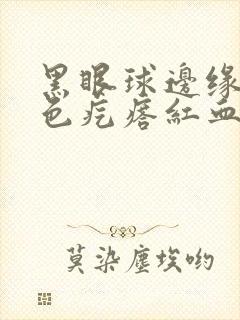 黑眼球邊缘
色疙瘩紅血
莫染塵埃喲